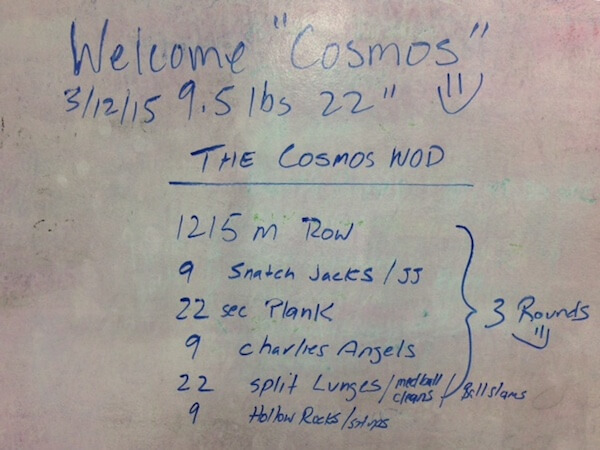 Welcome "Cosmos"
3/12/15 9.5 lbs 22"
THE COSMOS WOD
1215 m Row
9 Snatch Jacks / JJ
22 sec Plank
9 Charlies Angels
22 Split Lunges / medball cleans / Ball slams
9 Hollow Rocks / situps
3 Rounds